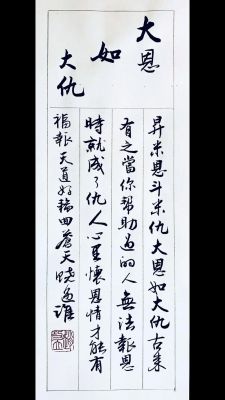 大恩
如
大仇
昇米恩斗米仇大恩如大仇古来
有之當你幫助過的人無法報恩
時就成了仇人心里懷恩情才能有
福報天道好轮回蒼天饶過谁